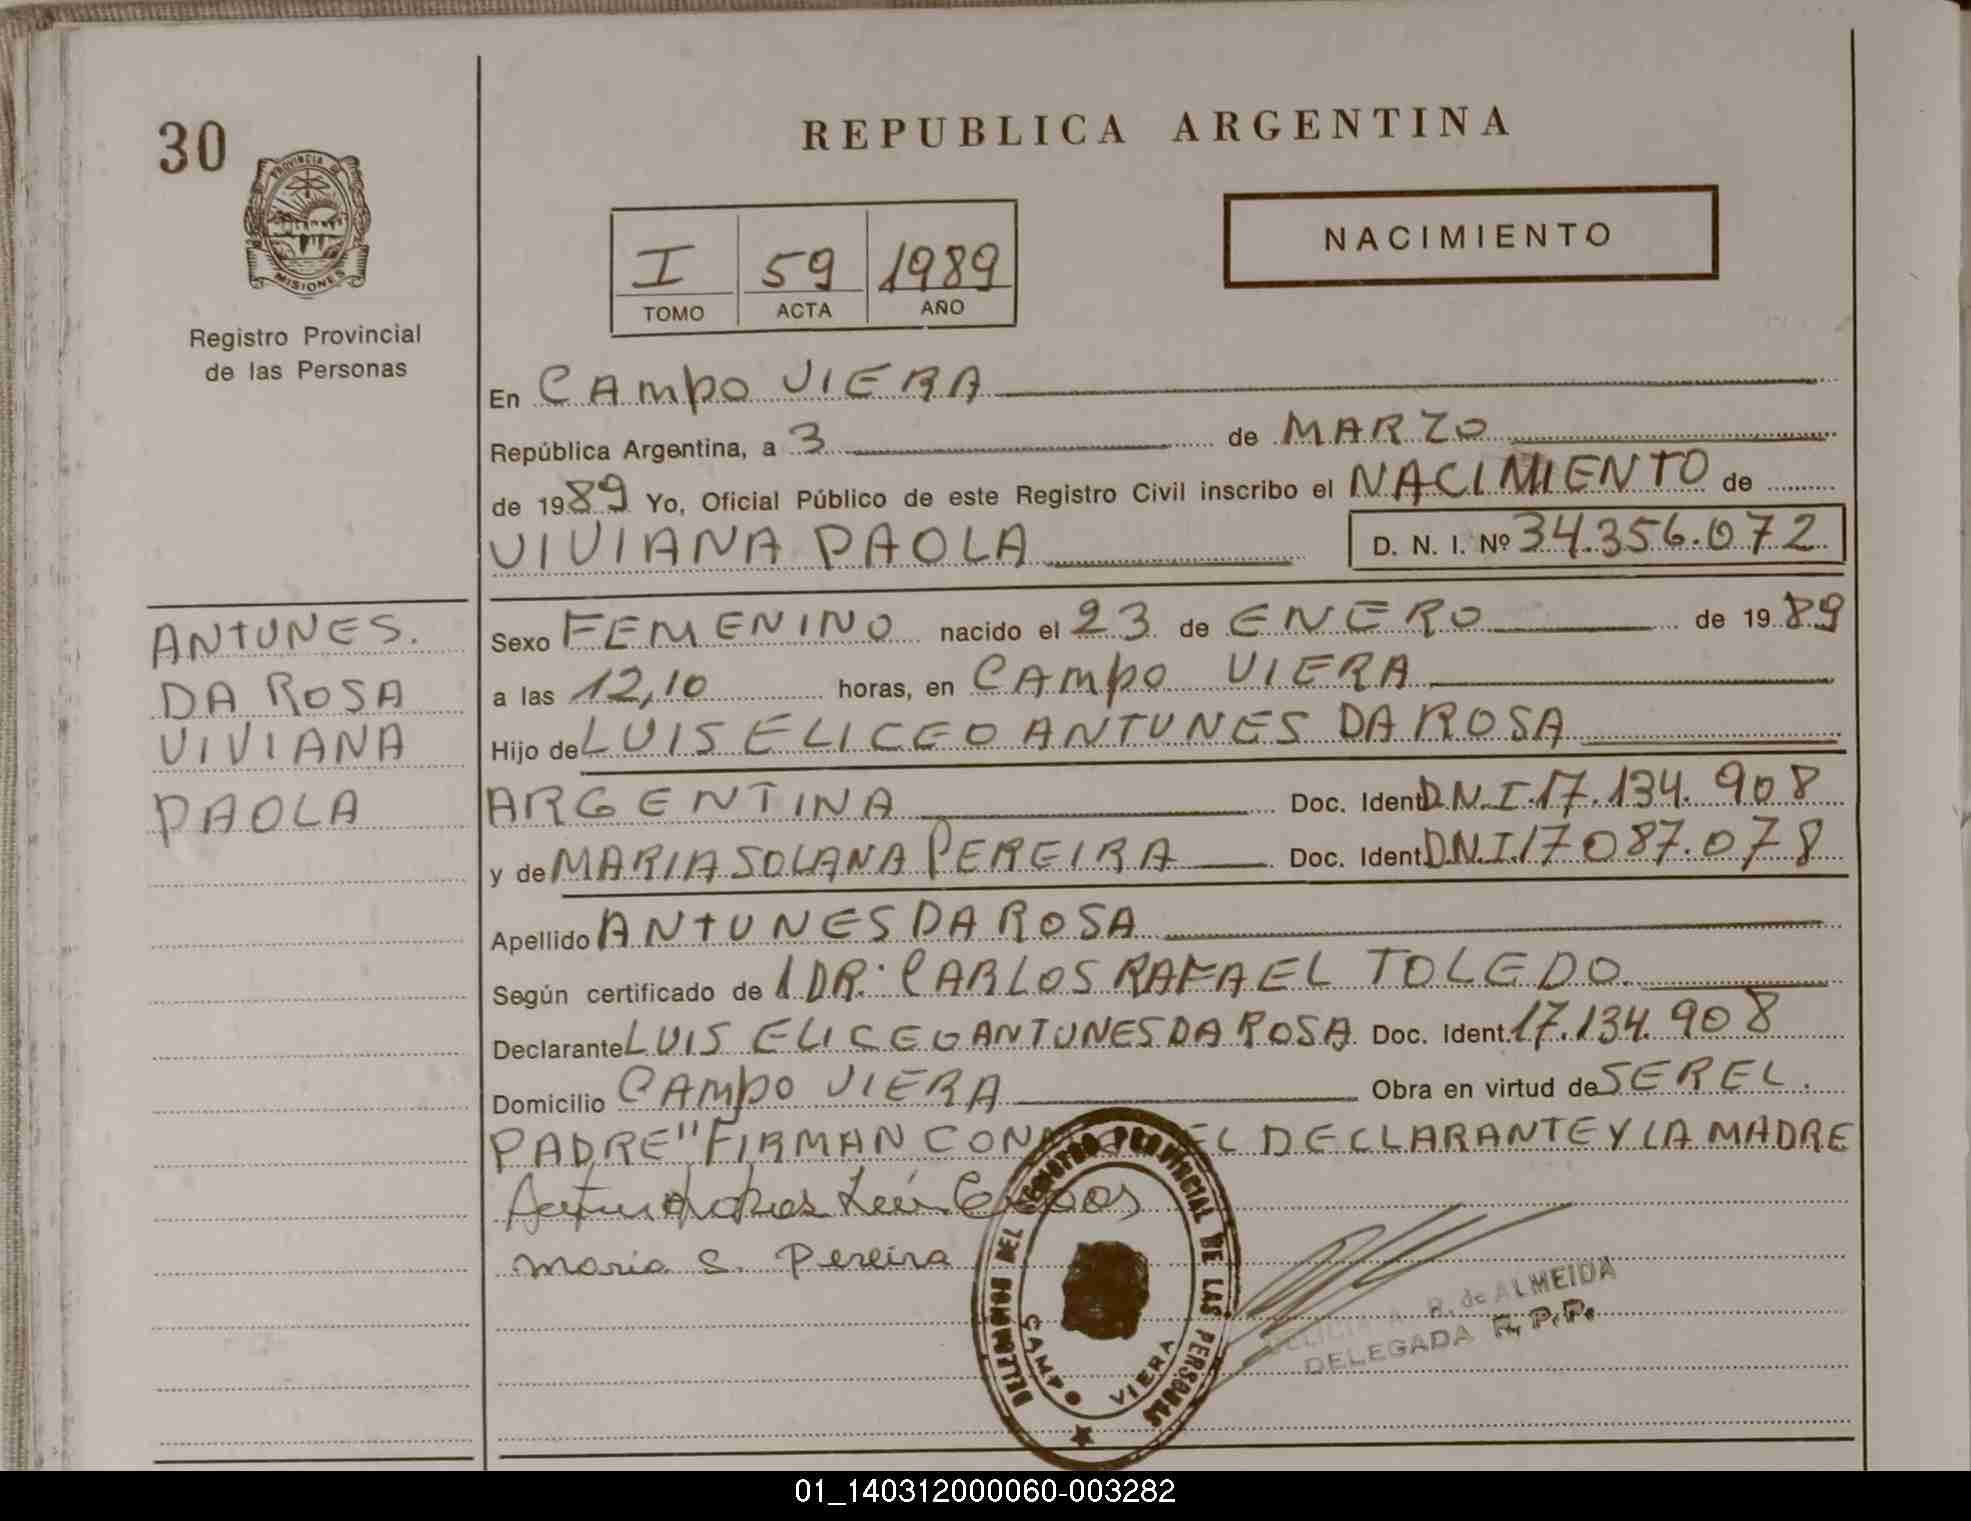 30
PROVINCIA DE
MISIONES
Registro Provincial
de las Personas
REPUBLICA ARGENTINA
I 59 1989
TOMO ACTA AÑO
NACIMIENTO
En CAMPO VIERA
República Argentina, a 3 de MARZO
de 1989 Yo, Oficial Público de este Registro Civil inscribo el NACIMIENTO de
VIVIANA PAOLA D. N. I. Nº 34.356.072
ANTUNES.
DA ROSA
VIVIANA
PAOLA
Sexo FEMENINO nacido el 23 de ENERO de 1989
a las 12,10 horas, en CAMPO VIERA
Hijo de LUIS ELICEO ANTUNES DA ROSA
ARGENTINA Doc. Ident. D.N.I. 17.134.908
y de MARIA SOLANA PEREIRA Doc. Ident. D.N.I. 17087.078
Apellido ANTUNES DA ROSA
Según certificado de DR. CARLOS RAFAEL TOLEDO
Declarante LUIS ELICEO ANTUNES DA ROSA Doc. Ident. 17.134.908
Domicilio CAMPO VIERA Obra en virtud de SER EL
PADRE" FIRMAN CON EL DECLARANTE Y LA MADRE
maria S. Pereira
REGISTRO PROVINCIAL DE LAS PERSONAS
CAMPO VIERA
R. de ALMEIDA
DELEGADA R.P.P.
01_140312000060-003282